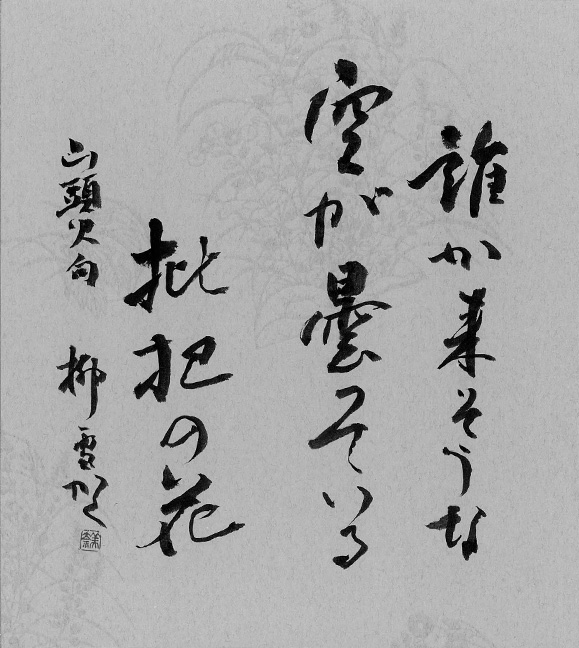 誰か来そうな
空が曇つている
枇杷の花
山頭火句
柳雪